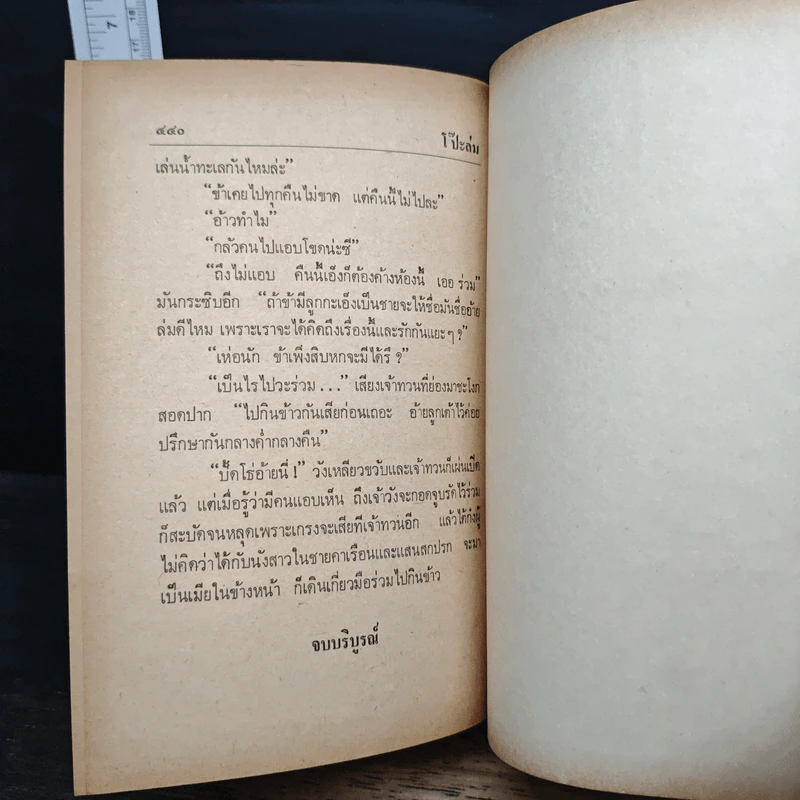 7
17
18
๔๔๐
โป๊ะล่ม
เล่นน้ำทะเลกันไหมล่ะ”
“ข้าเคยไปทุกคืนไม่ขาด แต่คืนนี้ไม่ไปละ”
“อ้าวทำไม”
“กลัวคนไปแอบโขดน่ะซี”
“ถึงไม่แอบ คืนนี้เอ็งก็ต้องค้างห้องนี้ เออ ร่วม”
มันกระซิบอีก “ถ้าข้ามีลูกกะเอ็งเป็นชายจะให้ชื่อมันชื่ออ้าย
ล่มดีไหม เพราะเราจะได้คิดถึงเรื่องนี้และรักกันแยะๆ?”
“เห่อนัก ข้าเพิ่งสิบหกจะมีได้รึ?”
“เป็นไรไปวะร่วม...” เสียงเจ้าทวนที่ย่องมาชะโงก
สอดปาก “ไปกินข้าวกันเสียก่อนเถอะ อ้ายลูกเต้าไว้ค่อย
ปรึกษากันกลางค่ำกลางคืน”
“ปั้ดโธ่อ้ายนี่!” วังเหลียวขวับและเจ้าทวนก็เผ่นเปิด
แล้ว แต่เมื่อรู้ว่ามีคนแอบเห็น ถึงเจ้าวังจะกอดจูบรัดไว้ร่วม
ก็สะบัดจนหลุดเพราะเกรงจะเสียทีเจ้าทวนอีก แล้วไต้ก๋งผู้
ไม่คิดว่าได้กับนังสาวในชายคาเรือนและแสนสกปรก จะมา
เป็นเมียในข้างหน้า ก็เดินเกี่ยวมือร่วมไปกินข้าว
จบบริบูรณ์